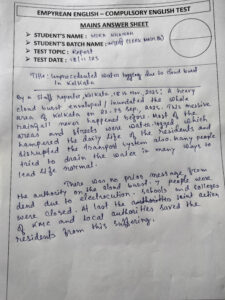 EMPYREAN ENGLISH – COMPULSORY ENGLISH TEST
MAINS ANSWER SHEET
➤ STUDENT'S NAME :
➤ STUDENT'S BATCH NAME :
➤ TEST TOPIC : Report
➤ TEST DATE : 18/11/25
Title: Unprecedented water logging due to cloud burst
in Kolkata
By a Staff reporter, Kolkata, 18 Nov, 2025: A heavy
cloud burst enveloped / inundated the whole
area of Kolkata on Sep, 2025. This massive
rainfall never happened before. Most of the
areas and streets were water-logged which
hampered the daily life of the residents and
disrupted the transport system also. Many people
tried to drain the water in many ways to
lead life normal.
There was no prior message from
the authority on the cloud burst. 7 people were
dead due to electrocution. Schools and colleges
were closed. At last the joint action
of KMC and local authorities saved the
residents from this suffering.